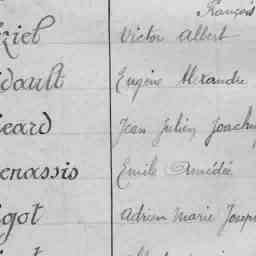 François
riel Victor Albert
dault Eugène Alexandre
card Jean Julien Joachim
enassis Emile Amédée
igot Adrien Marie Joseph